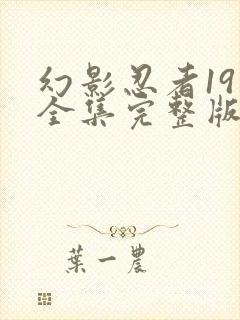 幻影忍者19
全集完整版
葉一農